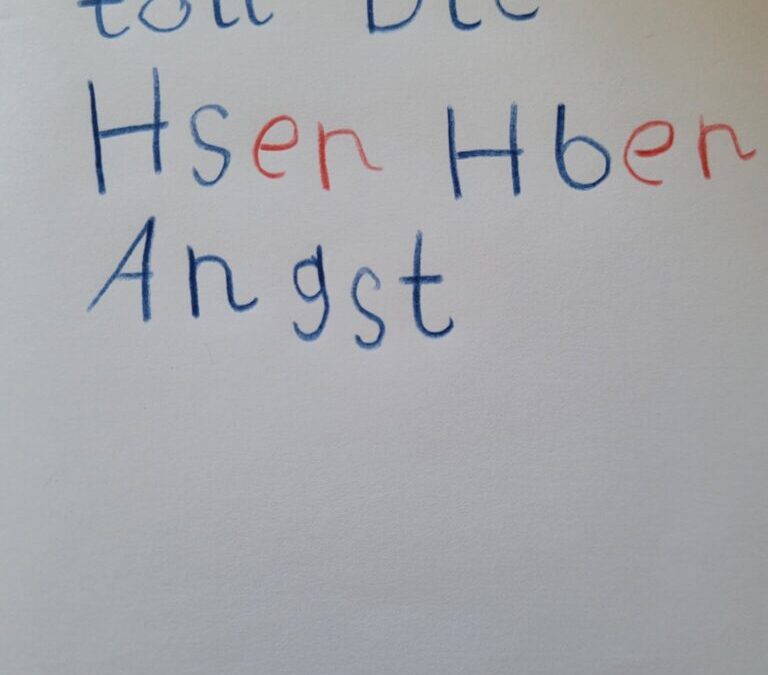 toll Die
Hsen Hben
Angst